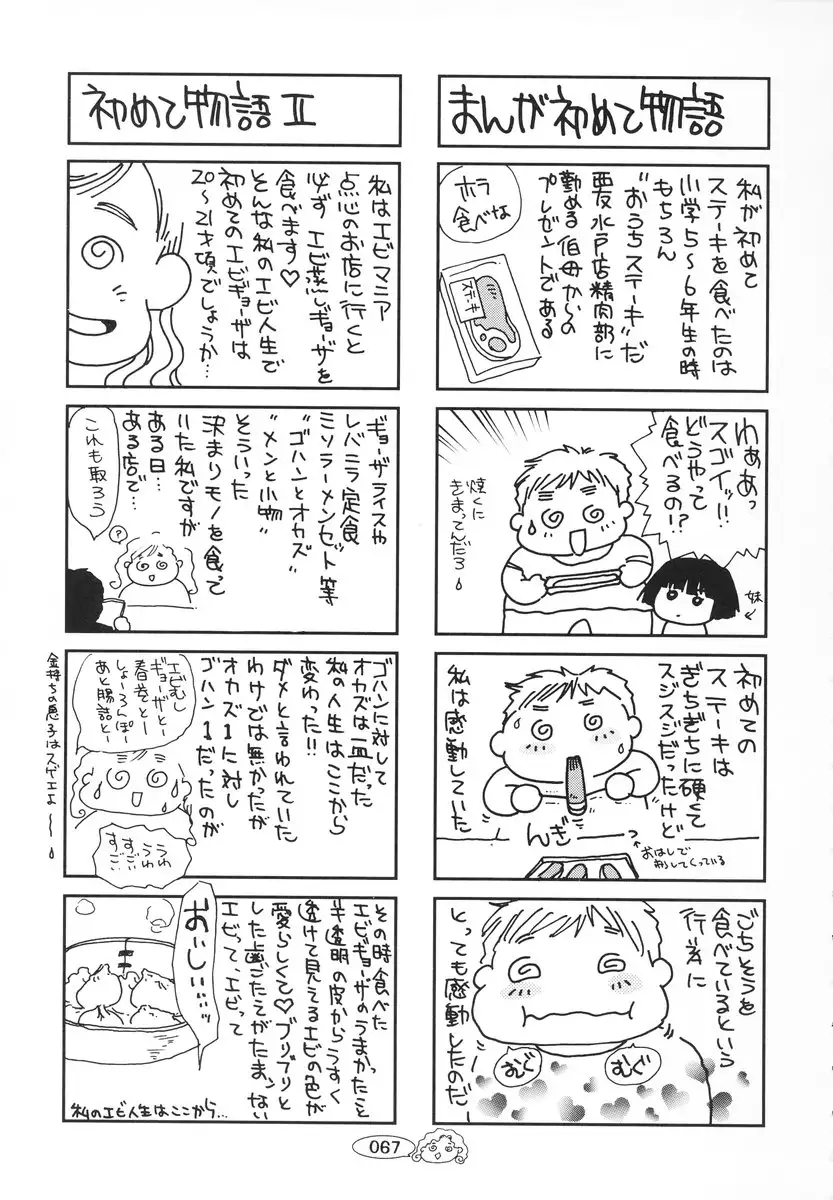 まんが初めて物語
私が初めて
ステーキを食べたのは
小学5〜6年生の時
もちろん
“おうちステーキ”だ
西友水戸店精肉部に
勤める伯母からの
プレゼントである
ホラ
食べな
ステーキ
わぁあっ
スゴイッ!!
どうやって
食べるの!?
焼くに
きまってんだろ
妹
初めての
ステーキは
ぎちぎちに硬くて
スジスジだったけど
私は感動していた
んぎーーっ
おはしで
刺してくっている
ごちそうを
食べているという
行為に
とっても感動したのだ
むぐ
むしぐ
初めて物語 II
私はエビマニア
点心のお店に行くと
必ずエビ蒸しギョーザを
食べます♡
そんな私のエビ人生で
初めてのエビギョーザは
20〜21才頃でしょうか…
ギョーザライスや
レバニラ定食
ミソラーメンセット等
“ゴハンとオカズ”
“メンと小物”
そういった
決まりモノを食って
いた私ですが
ある日…
ある店で…
これも取ろう
?
ゴハンに対して
オカズは一皿だった
私の人生はここから
変わった!!
ダメと言われていた
わけでは無かったが
オカズ1に対し
ゴハン1だったのが
エビむし
ギョーザとー
春巻とー
しょーろんぽー
あと腸詰とー
うわ
うわ
すごい
すごい
金持ちの息子は
スゲエよ〜〜
その時食べた
エビギョーザのうまかったこと
半透明の皮からうすく
透けて見えるエビの色が
愛らしくて♡プリプリと
した歯ごたえがたまンない
エビって、エビって
おいしい…ッ
私のエビ人生はここから…
067